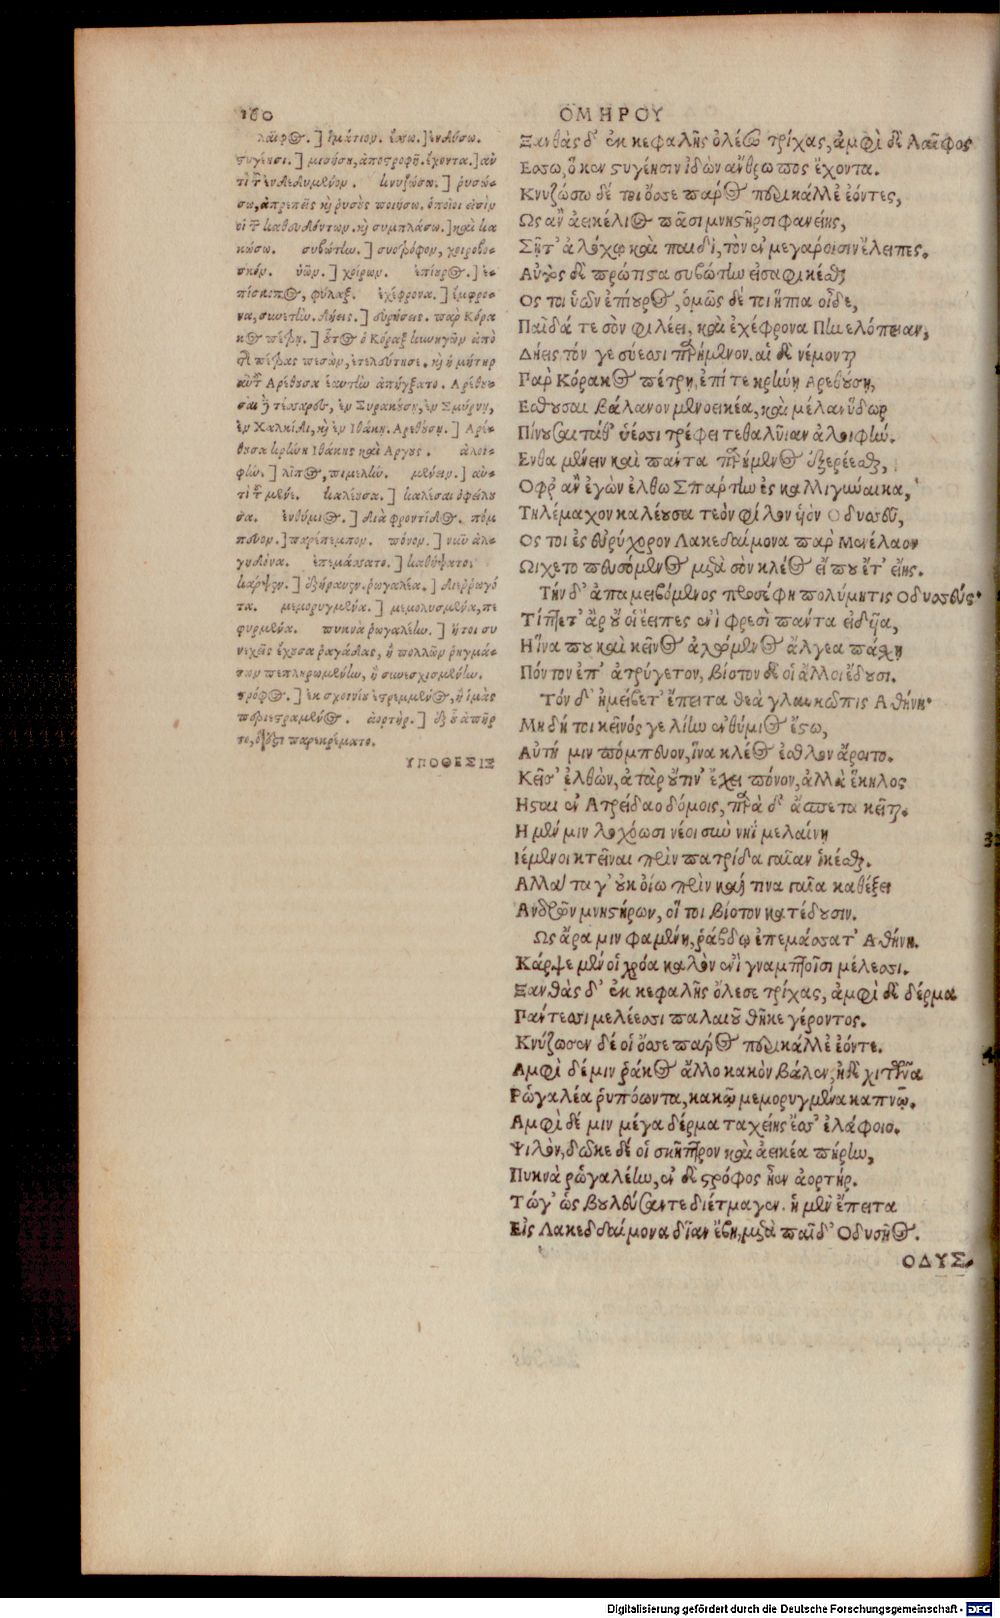 160
ΟΜΗΡΟΥ
λαῖφος.] ἱμάτιον. ἕσσω.] ἐνδύσω.
στυγέησι.] μισήσῃ, ἀποστροφῇ. ἔχοντα.] ἀντὶ τοῦ ἐνδεδυμένον. κνυζώσω.] ῥυσώσω, ἀπρεπεῖς καὶ ῥυσοὺς ποιήσω. ὁποῖοι εἰσὶν
οἱ τῶν καθευδόντων. καὶ συμπλάσω.] καὶ κακώσω. συβώτην.] συοτρόφον, χοιροβοσκόν. ὑῶν.] χοίρων. ἐπίουρος.] ἐπίσκοπος, φύλαξ. ἐχέφρονα.] ἔμφρονα, συνετήν. δήεις.] εὑρήσεις. παρ Κόρακος πέτρῃ.] οὗτος ὁ Κόραξ κυνηγῶν ἀπὸ
τῆς πέτρας πεσὼν, ἐτελεύτησε. καὶ ἡ μήτηρ
αὐτοῦ Αρέθουσα ἑαυτὴν ἀπήγξατο. Αρέθουσαι δὲ τέσσαρες, ἐν Συρακούσῃ, ἐν Σμύρνῃ,
ἐν Χαλκίδι, καὶ ἐν Ιθάκῃ. Αρεθούσῃ.] Αρέθουσα κρήνη Ιθάκης καὶ Αργους. ἀλοιφήν.] λίπος, πιμελήν. μένειν.] ἀντὶ τοῦ μένε. καλέουσα.] καλέσαι ὀφείλουσα. ἐνθύμιος.] διὰ φροντίδος. πόμπευον.] παρέπεμπον. πόνον.] νῦν ἀλγηδόνα. ἐπεμάσσατο.] καθήψατο.
κάρψεν.] ἐξήρανεν. ῥωγαλέα.] διερρωγότα. μεμορυγμένα.] μεμολυσμένα, πεφυρμένα. πυκνὰ ῥωγαλέην.] ἤτοι συνεχεῖς ἔχουσα ῥαγάδας, ἢ πολλῶν ῥηγμάτων πεπληρωμένην, ἢ συνεσχισμένην.
στρόφος.] ἐκ σχοινίου ἐστρεμμένος, ἢ ἱμὰς
περιεστραμμένος. ἀορτήρ.] ἐξ οὗ ἀπῄρτητο, ὅ ἐστι παρεκρέματο.
ΥΠΟΘΕΣΙΣ
Ξανθὰς δ' ἐκ κεφαλῆς ὀλέσω τρίχας, ἀμφὶ δὲ λαῖφος
Εσσω, ὅ κεν στυγέησιν ἰδὼν ἄνθρωπος ἔχοντα.
Κνυζώσω δέ τοι ὄσσε πάρος περικάλλἐ ἐόντες,
Ως ἂν ἀεικέλιος πᾶσι μνηστῆρσι φανείης,
Σῇ τ' ἀλόχῳ καὶ παιδὶ, τὸν ἐν μεγάροισιν ἔλειπες.
Αὐτὸς δὲ πρώτιστα συβώτην εἰσαφικέσθαι
Ος τοι ὑῶν ἐπίουρος, ὁμῶς δέ τοι ἤπια οἶδε,
Παῖδά τε σὸν φιλέει, καὶ ἐχέφρονα Πηνελόπειαν,
Δήεις τόν γε σύεσσι παρήμενον. αἱ δὲ νέμονται
Παρ Κόρακος πέτρῃ, ἐπί τε κρήνῃ Αρεθούσῃ,
Εσθουσαι βάλανον μενοεικέα, καὶ μέλαν ὕδωρ
Πίνουσαι τάθ' ὕεσσι τρέφει τεθαλῦιαν ἀλοιφήν.
Ενθα μένειν καὶ πάντα παρήμενος ἐξερέεσθαι,
Οφρ' ἂν ἐγὼν ἔλθω Σπάρτην ἐς καλλιγύναικα,
Τηλέμαχον καλέουσα τεὸν φίλον υἱὸν Οδυσσεῦ,
Ος τοι ἐς εὐρύχορον Λακεδαίμονα παρ Μενέλαον
Ωιχετο πευσόμενος μετὰ σὸν κλέος εἴ που ἔτ' εἴης.
Τὴν δ' ἀπαμειβόμενος προσέφη πολύμητις Οδυσσεύς.
Τίπτετ' ἄρ' οὔ οἱ ἔειπες ἐνὶ φρεσὶ πάντα εἰδῦια,
Η ἵνα που καὶ κεῖνος ἀλώμενος ἄλγεα πάσχῃ
Πόντον ἐπ' ἀτρύγετον, βίοτον δέ οἱ ἄλλοι ἔδουσι.
Τόν δ' ἠμείβετ' ἔπειτα θεὰ γλαυκῶπις Αθήνη.
Μὴ δή τοι κεῖνός γε λίην ἐνθύμιος ἔστω,
Αὐτή μιν πόμπευον, ἵνα κλέος ἐσθλὸν ἄροιτο.
Κεῖσ' ἐλθὼν, ἀτὰρ οὔτιν' ἔχει πόνον, ἀλλὰ ἕκηλος
Ησται ἐν Ατρείδαο δόμοις, παρὰ δ' ἄσπετα κεῖται.
Η μέν μιν λοχόωσι νέοι σὺν νηῒ μελαίνῃ
Ιέμενοι κτεῖναι πρὶν πατρίδα γαῖαν ἱκέσθαι.
Αλλὰ τά γ' οὐκ ὀίω πρὶν καί τινα γαῖα καθέξει
Ανδρῶν μνηστήρων, οἵ τοι βίοτον κατέδουσιν.
Ως ἄρα μιν φαμένη, ῥάβδῳ ἐπεμάσσατ' Αθήνη.
Κάρψε μέν οἱ χρόα καλὸν ἐνὶ γναμπτοῖσι μέλεσσι.
Ξανθὰς δ' ἐκ κεφαλῆς ὄλεσε τρίχας, ἀμφὶ δὲ δέρμα
Πάντεσσι μελέεσσι παλαιοῦ θῆκε γέροντος.
Κνύζωσεν δέ οἱ ὄσσε πάρος περικάλλἐ ἐόντε.
Αμφὶ δέ μιν ῥάκος ἄλλο κακὸν βάλεν, ἠδὲ χιτῶνα
Ρωγαλέα ῥυπόωντα, κακῷ μεμορυγμένα καπνῷ.
Αμφὶ δέ μιν μέγα δέρμα ταχείης ἕσσ' ἐλάφοιο.
Ψιλὸν, δῶκε δέ οἱ σκῆπτρον καὶ ἀεικέα πήρην,
Πυκνὰ ῥωγαλέην, ἐν δὲ στρόφος ἦεν ἀορτήρ.
Τώγ' ὡς βουλεύσαντε διέτμαγεν. ἡ μὲν ἔπειτα
Εἰς Λακεδδαίμονα δῖαν ἔβη, μετὰ παῖδ' Οδυσῆος.
ΟΔΥΣ.
Digitalisierung gefördert durch die Deutsche Forschungsgemeinschaft - DFG